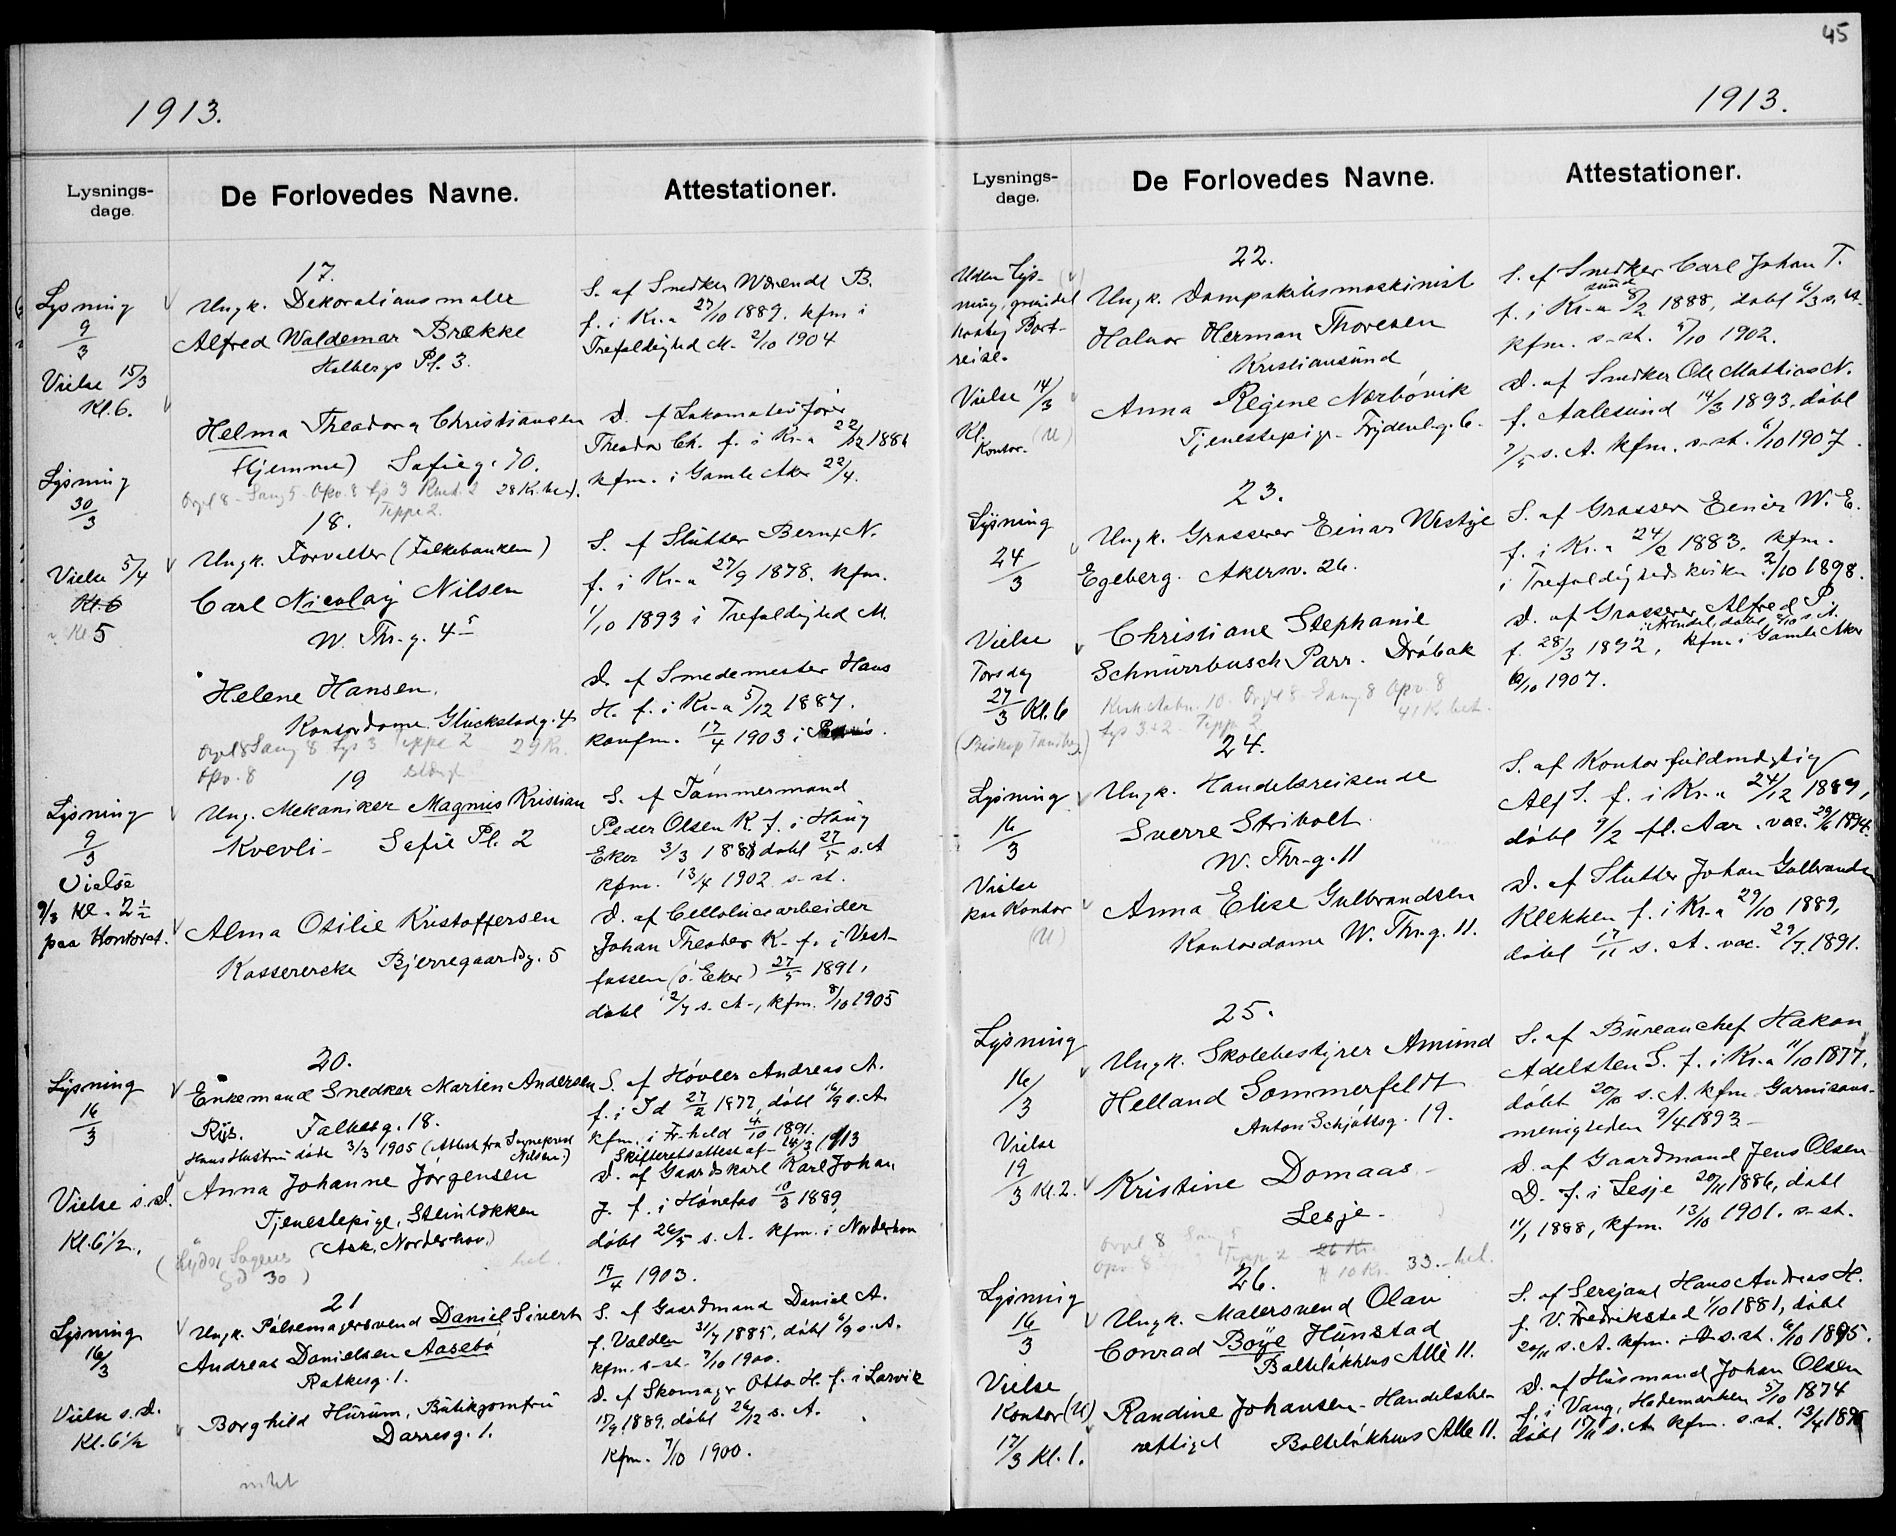 1913.
Lysnings-
dage.
De Forlovedes Navne.
Attestationer.
17.
Lysning
9/3
Vielse 15/3
Kl. 6.
Ungk. Dekorationsmaler
Alfred Waldemar Brække
Holbergs Pl. 3.
S. af Snedker B.
f. i Kr.a 27/10 1889. kfm i
Trefoldighed M. 2/10 1904
Helma Theodora Christiansen
(Hjemme) Sofieg. 70.
Orgel 8 - Sang 5 - Opv. 8 Lys 3 2 28 Kr. bet.
Teppe 2.
D. af Lokomotivfører
Theodor Ch. f. i Kr.a 22/12 1886
kfm. i Gamle Aker 22/4.
18.
Lysning
30/3
Vielse 5/4
Kl. 6
Kl 5
Ungk. Forvalter (Folkebanken)
Carl Nicolay Nilsen
W. Thr. g. 45
S. af Slutter Bernt N.
f. i Kr.a 27/9 1878. kfm.
1/10 1893 i Trefoldighed M.
Helene Hansen.
Kontordame. Glückstadg. 4
Orgel 8 Sang 8 Lys 3 Teppe 2 29 Kr.
Opv. 8
D. af Smedemester Hans
H. f. i Kr.a 5/12 1887.
konfm. 17/4 1903 i
19
Lysning
9/3
Vielse
9/3 Kl. 2½
paa Kontoret.
Ung. Mekaniker Magnus Kristian
Kvevli - Sofie Pl. 2
S. af Tømmermand
Peder Olsen K. f. i Haug
Eker 3/3 1888 døbt 27/5 s. A
kfm. 13/4 1902 s. st.
Alma Otilie Kristoffersen
Kassererske Bjerregaardsg. 5
D. af Cellulosearbeider
Johan Theodor K. f. i Vest-
fossen (ö. Eker) 27/5 1891,
døbt 2/7 s. A., kfm. 8/10 1905
20.
Lysning
16/3
Vielse s. D.
Kl. 6½.
Enkemand Snedker Martin Andersen
Falbesg. 18.
Hans Hustru døde 3/3 1905 (Attest fra Sogneprest
Nilsen)
S. af Høvler Andreas A.
f. i Id 27/2 1877, døbt 16/9 s. A
kfm. i Fr.hald 4/10 1891.
Skifteretsattest af 14/3 1913
Anna Johanne Jørgensen
Tjenestepige, Stenløkken
(Ask, Norderhov.)
(Lyder Sagens
gd 30) bet.
D. af Gaardskarl Karl Johan
J. f. i Hønefos 10/3 1889,
døbt 26/5 s. A. kfm. i Norderhov
19/4 1903.
21
Lysning
16/3
Vielse s. D.
Kl. 6½
Ungk. Pølsemagersvend Daniel Sivert
Andreas Danielsen Aasebø
Ratkesg. 1.
S. af Gaardmand Daniel A.
f. Valden 31/7 1885, døbt 6/9 s. A.
kfm. s. st. 7/10 1900.
Borghild Hurum, Butikjomfru
Darresg. 1.
D. af Skomagr Otto H. f. i Larvik
17/9 1889, døbt 26/12 s. A.
Kfm. 7/10 1900.
intet
45
1913.
Lysnings-
dage.
De Forlovedes Navne.
Attestationer.
22.
Uden Lys-
ning, grundet
hastig Bort-
reise.
Vielse 14/3
Kl.
Kontor. (U)
Ungk. Dampskibsmaskinist
Halvor Herman Thoresen
Kristiansund
S. af Snedker Carl Johan T.
f. i Kr.sund 8/2 1888, døbt 6/3 s. A.
kfm. s. st. 5/10 1902.
Anna Regine Nærbövik
Tjenestepige. Frydenbg. 6.
D. af Snedker Ole Mathias N.
f. Aalesund 14/3 1893, døbt
7/5 s. A. kfm. s. st. 6/10 1907.
23.
Lysning
24/3
Vielse
Torsdag
27/3 Kl. 6
(Biskop Tandberg)
Ungk. Grosserer Einar Westye
Egeberg. Akersv. 26.
S. af Grosser Einar W. E.
f. i Kr.a 24/2 1883. kfm.
i Trefoldigheds kirken 2/10 1898.
Christiane Stephanie
Schnürrbusch Parr. Drøbak
10. Orgel 8 Sang 8 Opv. 8
Lys 3 + 2 Teppe 2 41 Kr. bet.
D. af Grosserer Alfred P.
i Arendal, døbt s. A.
f. 28/3 1892, kfm i Gamle Aker
6/10 1907.
24.
Lysning
16/3
Vielse
paa Kontor
(U)
Ungk. Handelsreisende
Sverre Stribolt
W. Thr. g. 11
S. af Kontorfuldmægtig
Alf S. f. i Kr.a 24/12 1889,
døbt 9/2 fl. Aar. vac. 29/6 1894.
Anna Elise Gulbrandsen
Kontordame W. Thr. g. 11.
D. af Slutter Johan Gulbrandsen
Klekken f. i Kr.a 29/10 1889,
døbt 17/11 s. A. vac. 29/7 1891.
25.
Lysning
16/3
Vielse
19/3 Kl. 2.
Ungk. Skolebestyrer Amund
Helland Sommerfeldt
Anton Schjøttsg. 19.
S. af Bureauchef Hakon
Adelsten S. f. i Kr.a 11/10 1877,
døbt s. A. kfm. Garnisons-
menigheden 9/4 1893 -
Kristine Domaas -
Lesje -
Orgel 8 Sang 5
Opv. 8 Teppe 2 26 Kr.
10 Kr. 33.- bet.
D. af Gaardmand Jens Olsen
D. f. i Lesje 20/11 1886, døbt
11/1 1888, kfm. 13/10 1901. s. st.
26.
Lysning
16/3
Vielse
Kontor (U)
17/3 Kl. 1.
Ungk. Malersvend Olav
Conrad Boye Hunstad
Bolteløkkens Allé 11.
S. af Sersjant Hans Andreas H.
f. V. Fredrikstad 1/10 1881, døbt
20/11 s. A. kfm. s. st. 6/10 1895.
Randine Johansen - Handelsbe-
rettiget Bolteløkkens Alle 11.
D. af Husmand Johan Olsen
f. i Vang, Hedemarken 5/10 1874
døbt 15/11 s. A. kfm. s. st. 13/4 1890